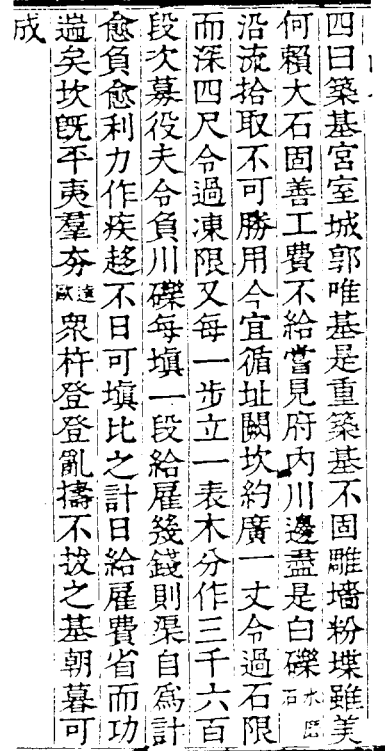 四曰築基宮室城郭唯基是重築基不固雕墻粉堞雖美
何賴大石固善工費不給嘗見府內川邊盡是白礫水磨石
沿流拾取不可勝用今宜循址闕坎約廣一丈令過石限
而深四尺令過凍限又每一步立一表木分作三千六百
段次募役夫令負川礫每塡一段給雇幾錢則渠自爲計
愈負愈利力作疾趍不日可塡比之計日給雇費省而功
遄矣坎旣平夷羣夯遠歐衆杵登登亂擣不拔之基朝暮可
成